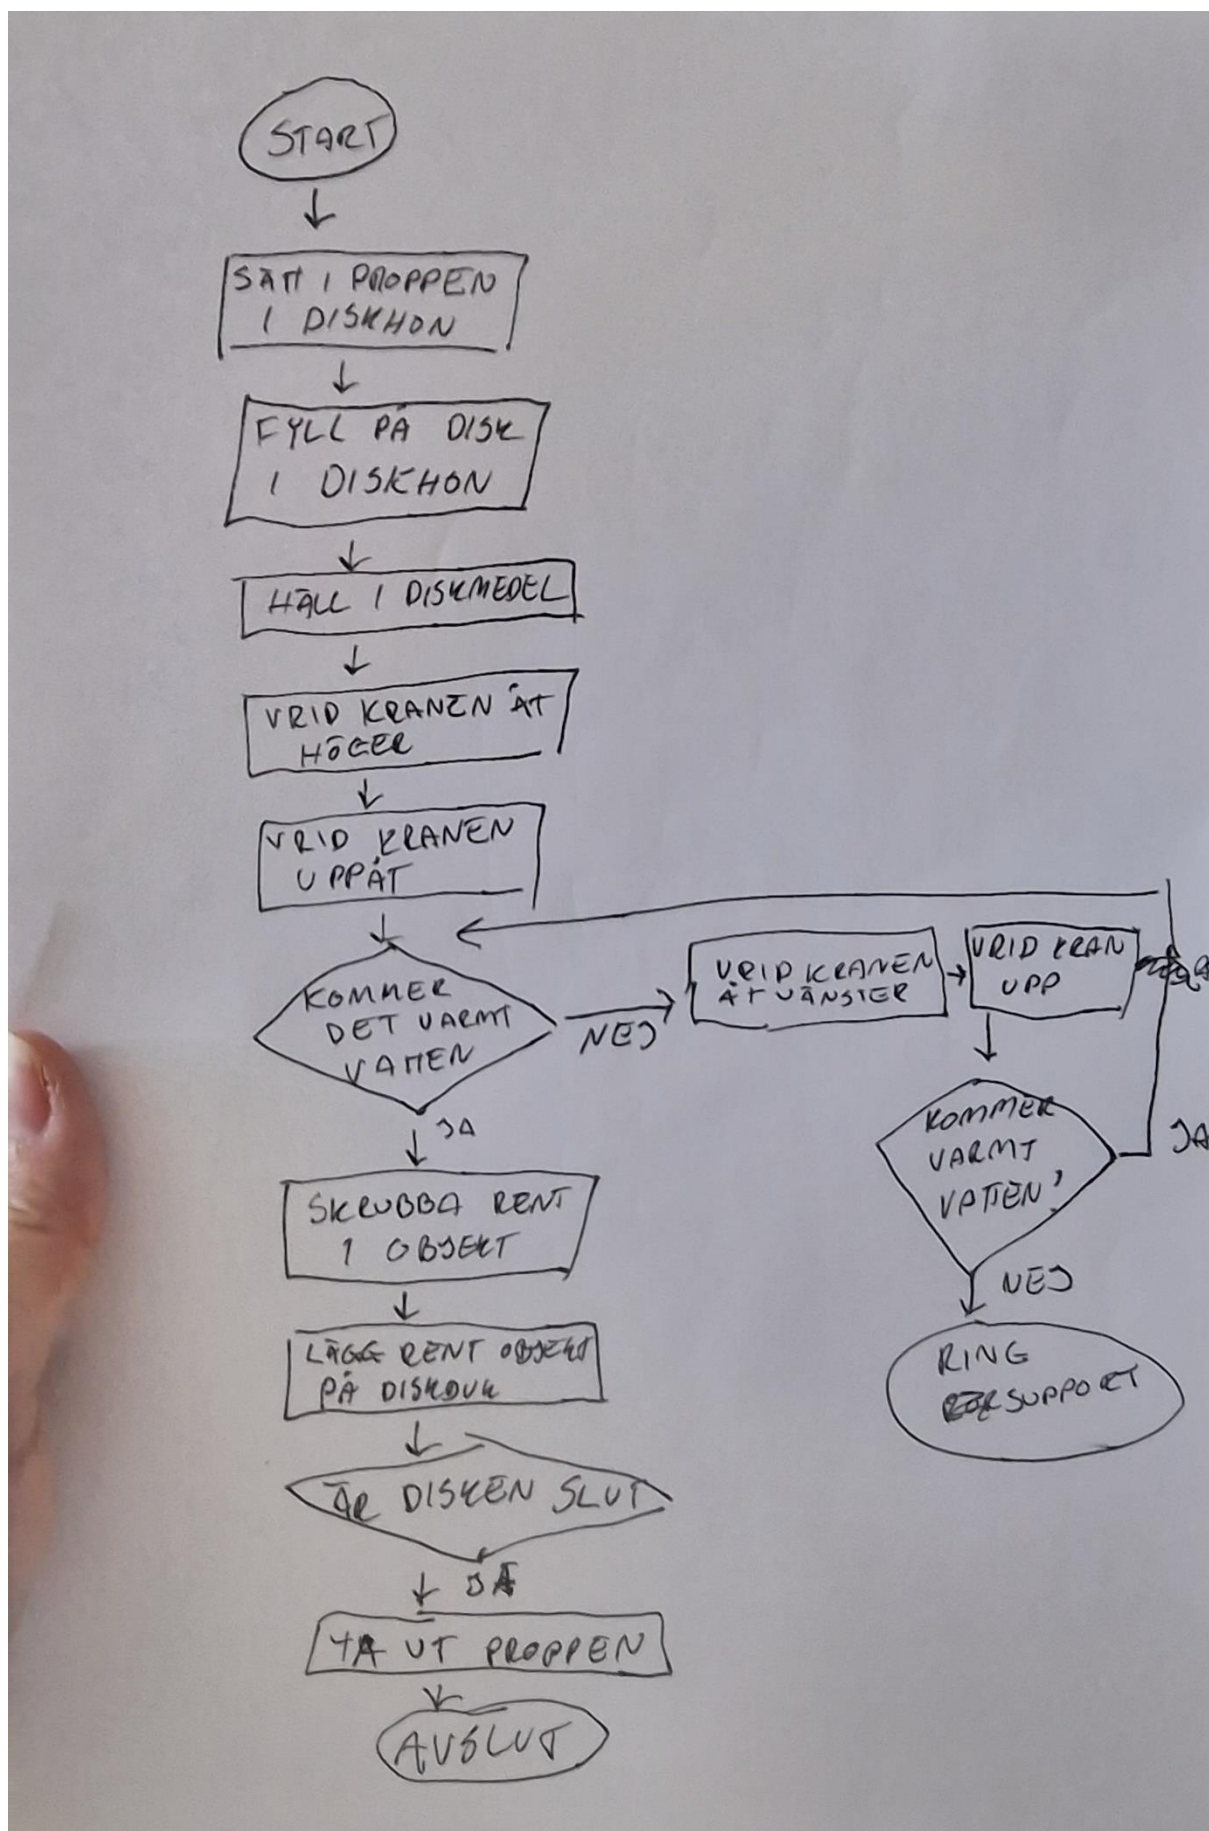 START
SÄTT I PROPPEN
I DISKHON
FYLL PÅ DISK
I DISKHON
HÄLL I DISKMEDEL
VRID KRANEN ÅT
HÖGER
VRID KRANEN
UPPÅT
KOMMER
DET VARMT
VATTEN
NEJ
VRID KRANEN
ÅT VÄNSTER
VRID KRAN
UPP
KOMMER
VARMT
VATTEN
JA
NEJ
RING
SUPPORT
JA
SKRUBBA RENT
1 OBJEKT
LÄGG RENT OBJEKT
PÅ DISKDUK
ÄR DISKEN SLUT
JA
TA UT PROPPEN
AVSLUT